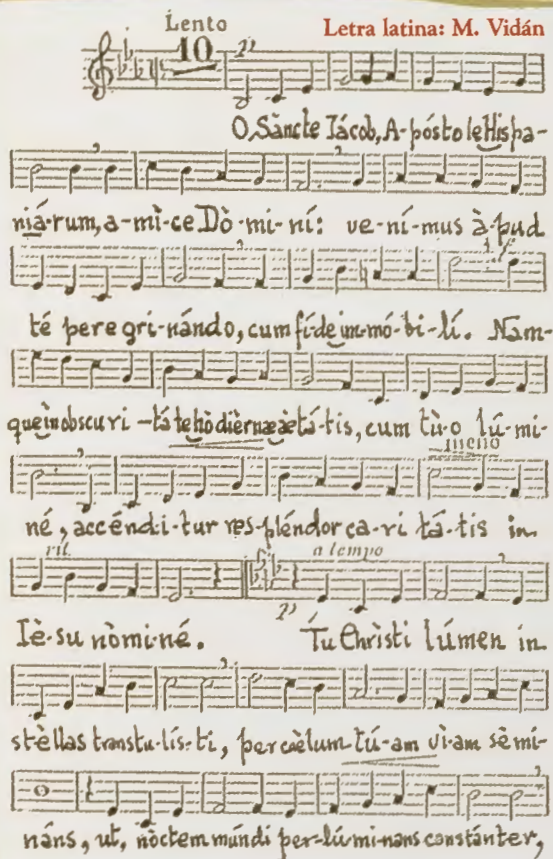 Lento
Letra latina: M. Vidán
10
p
O, Sàncte Iácob, A-póstole Hispa-
niá-rum, a-mì-ce Dò-mi-ní: ve-ní-mus à-pud
té peregri-nándo, cum fí-de im-mó-bi-lí. Nam-
que in obscuri-tá te hòdièrnæ ætá-tis, cum tù-o lú-mi-
meno
né, accéndi-tur res-pléndor ca-ri tá-tis in
rit. a tempo
p
Iè-su nòmi-né. Tu Christi lúmen in
stèllas transtu-lís-ti, per caèlum tú-am vì-am sèmi-
náns, ut, nòctem múndi per-lúmi-nans constánter,